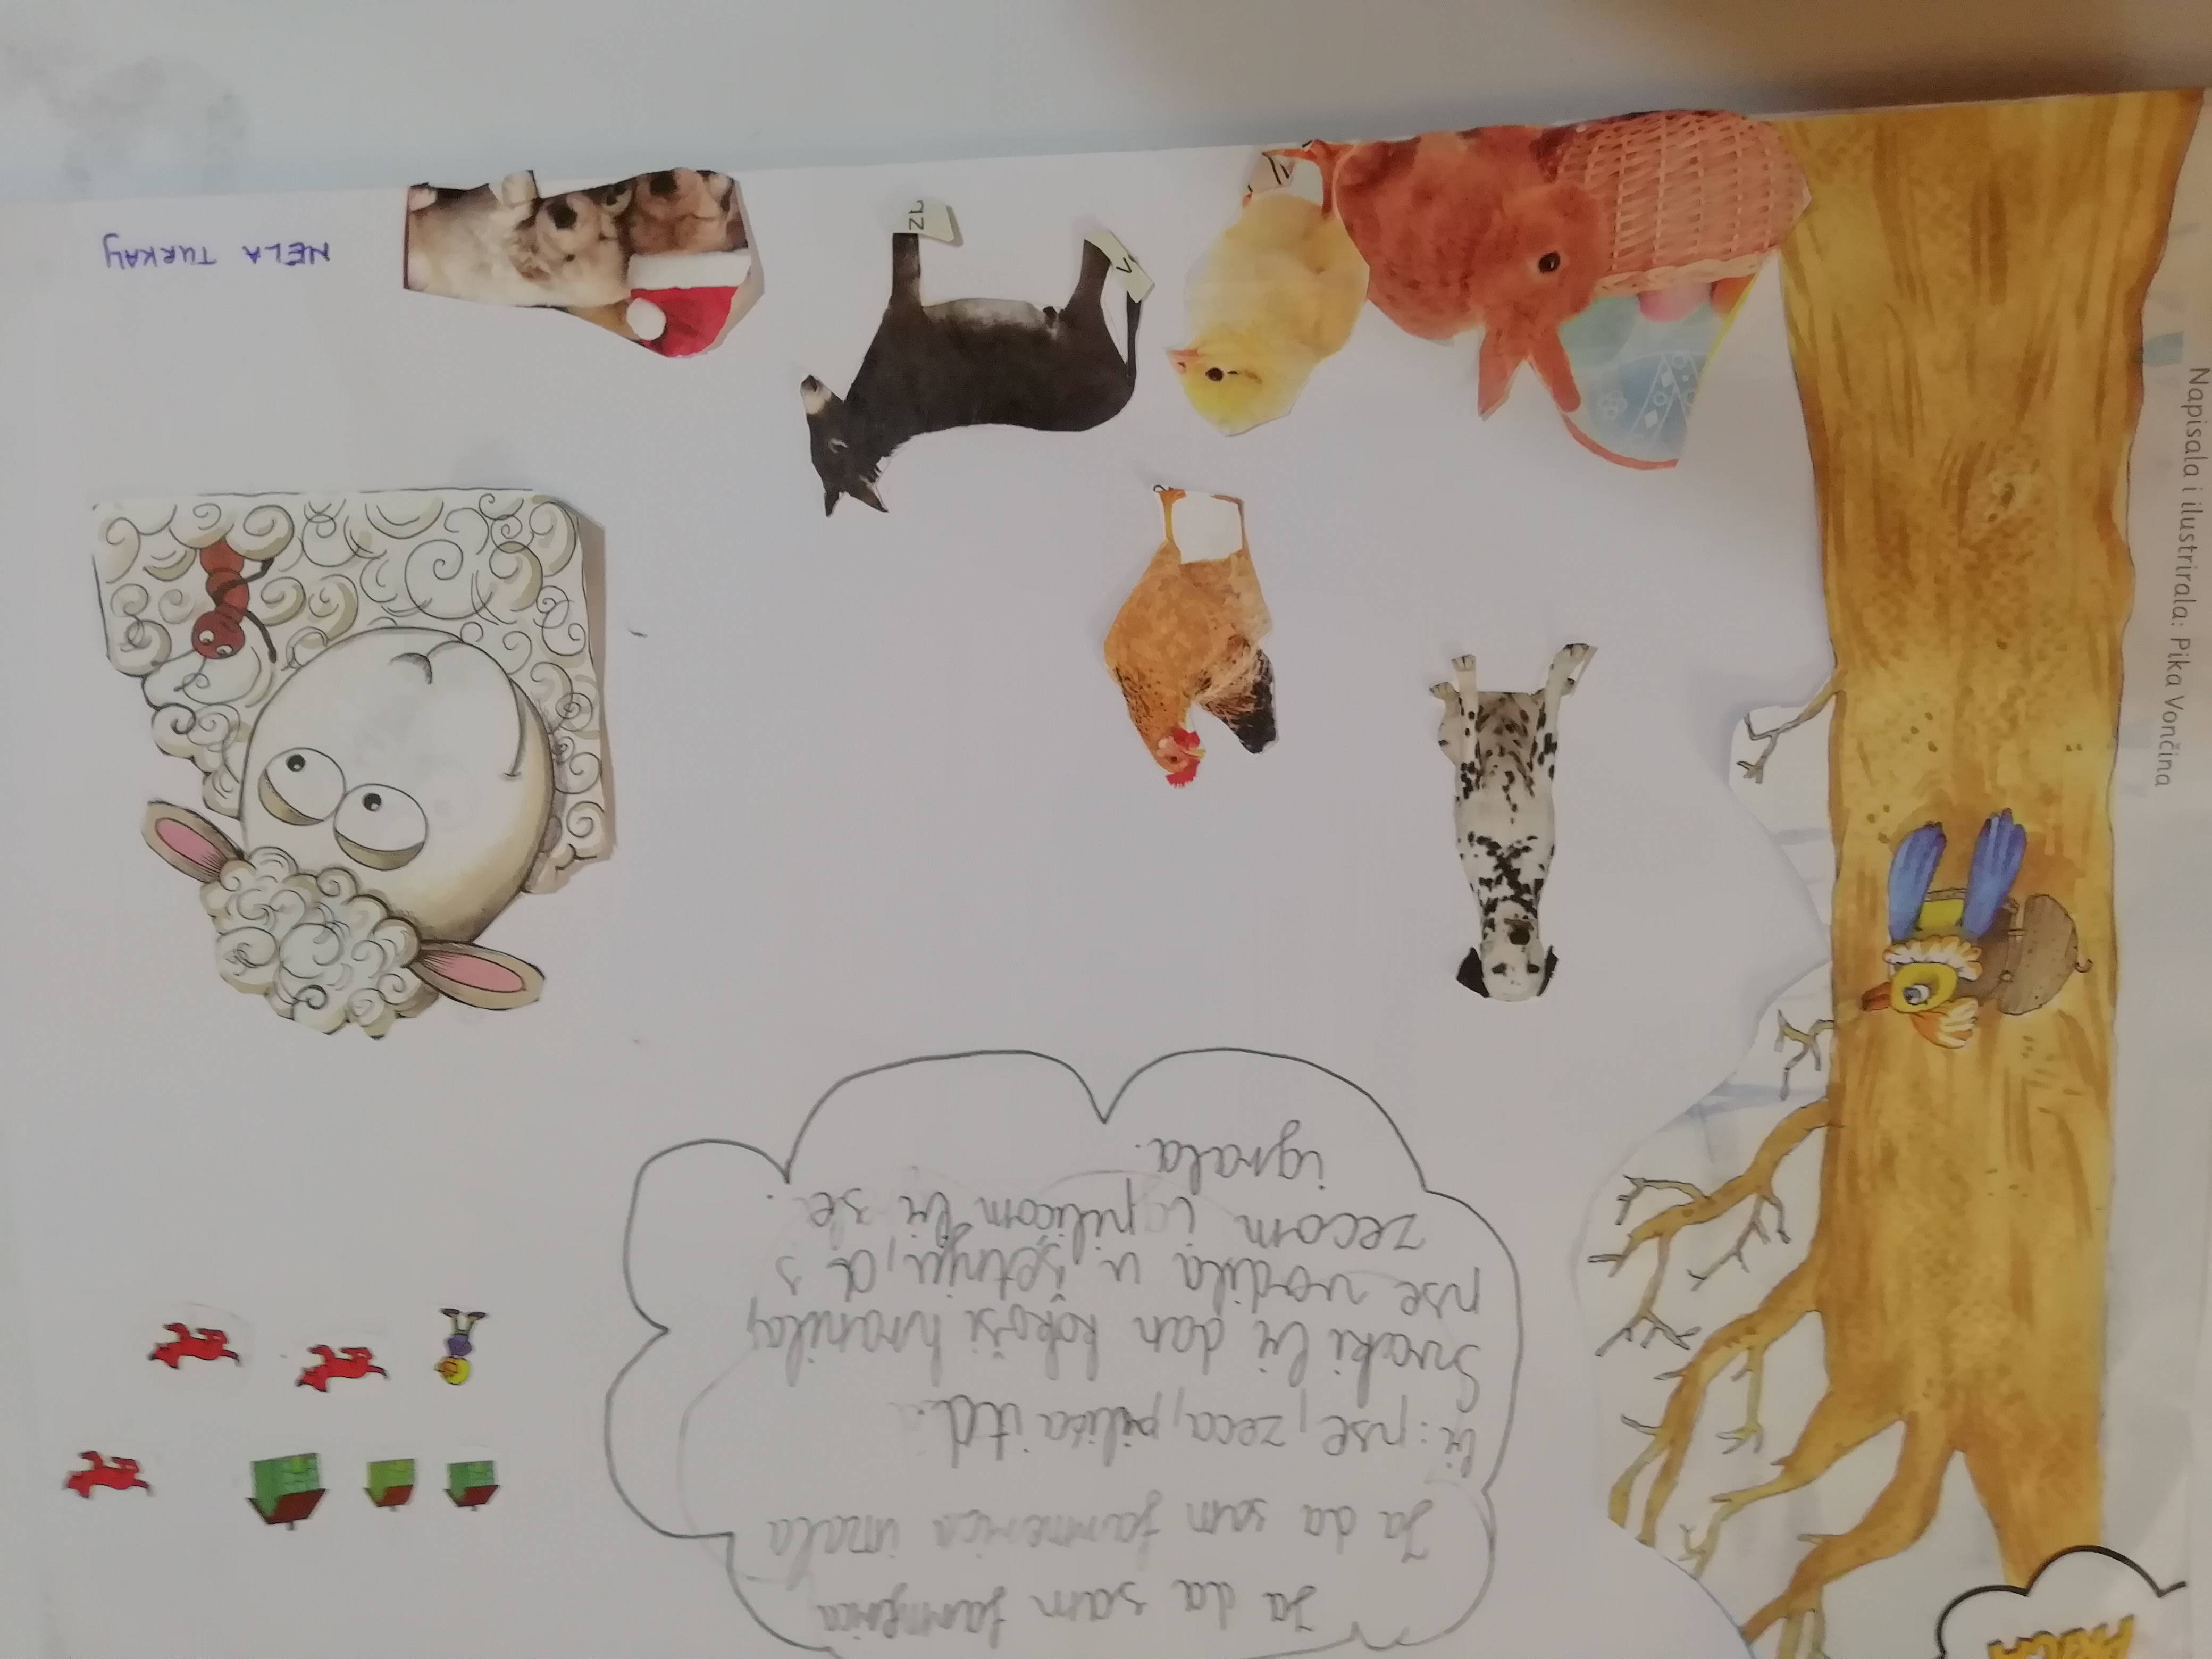 PRIČA
Ja da sam farmerica
Ja da sam farmerica imala
bi: pse, zeca, pilića itd.
Svaki bi dan kokoši hranila,
pse vodila u šetnju, a s
zecom i pilićom bi se
igrala.
NELA TURKALJ
Napisala i ilustrirala: Pika Vončina